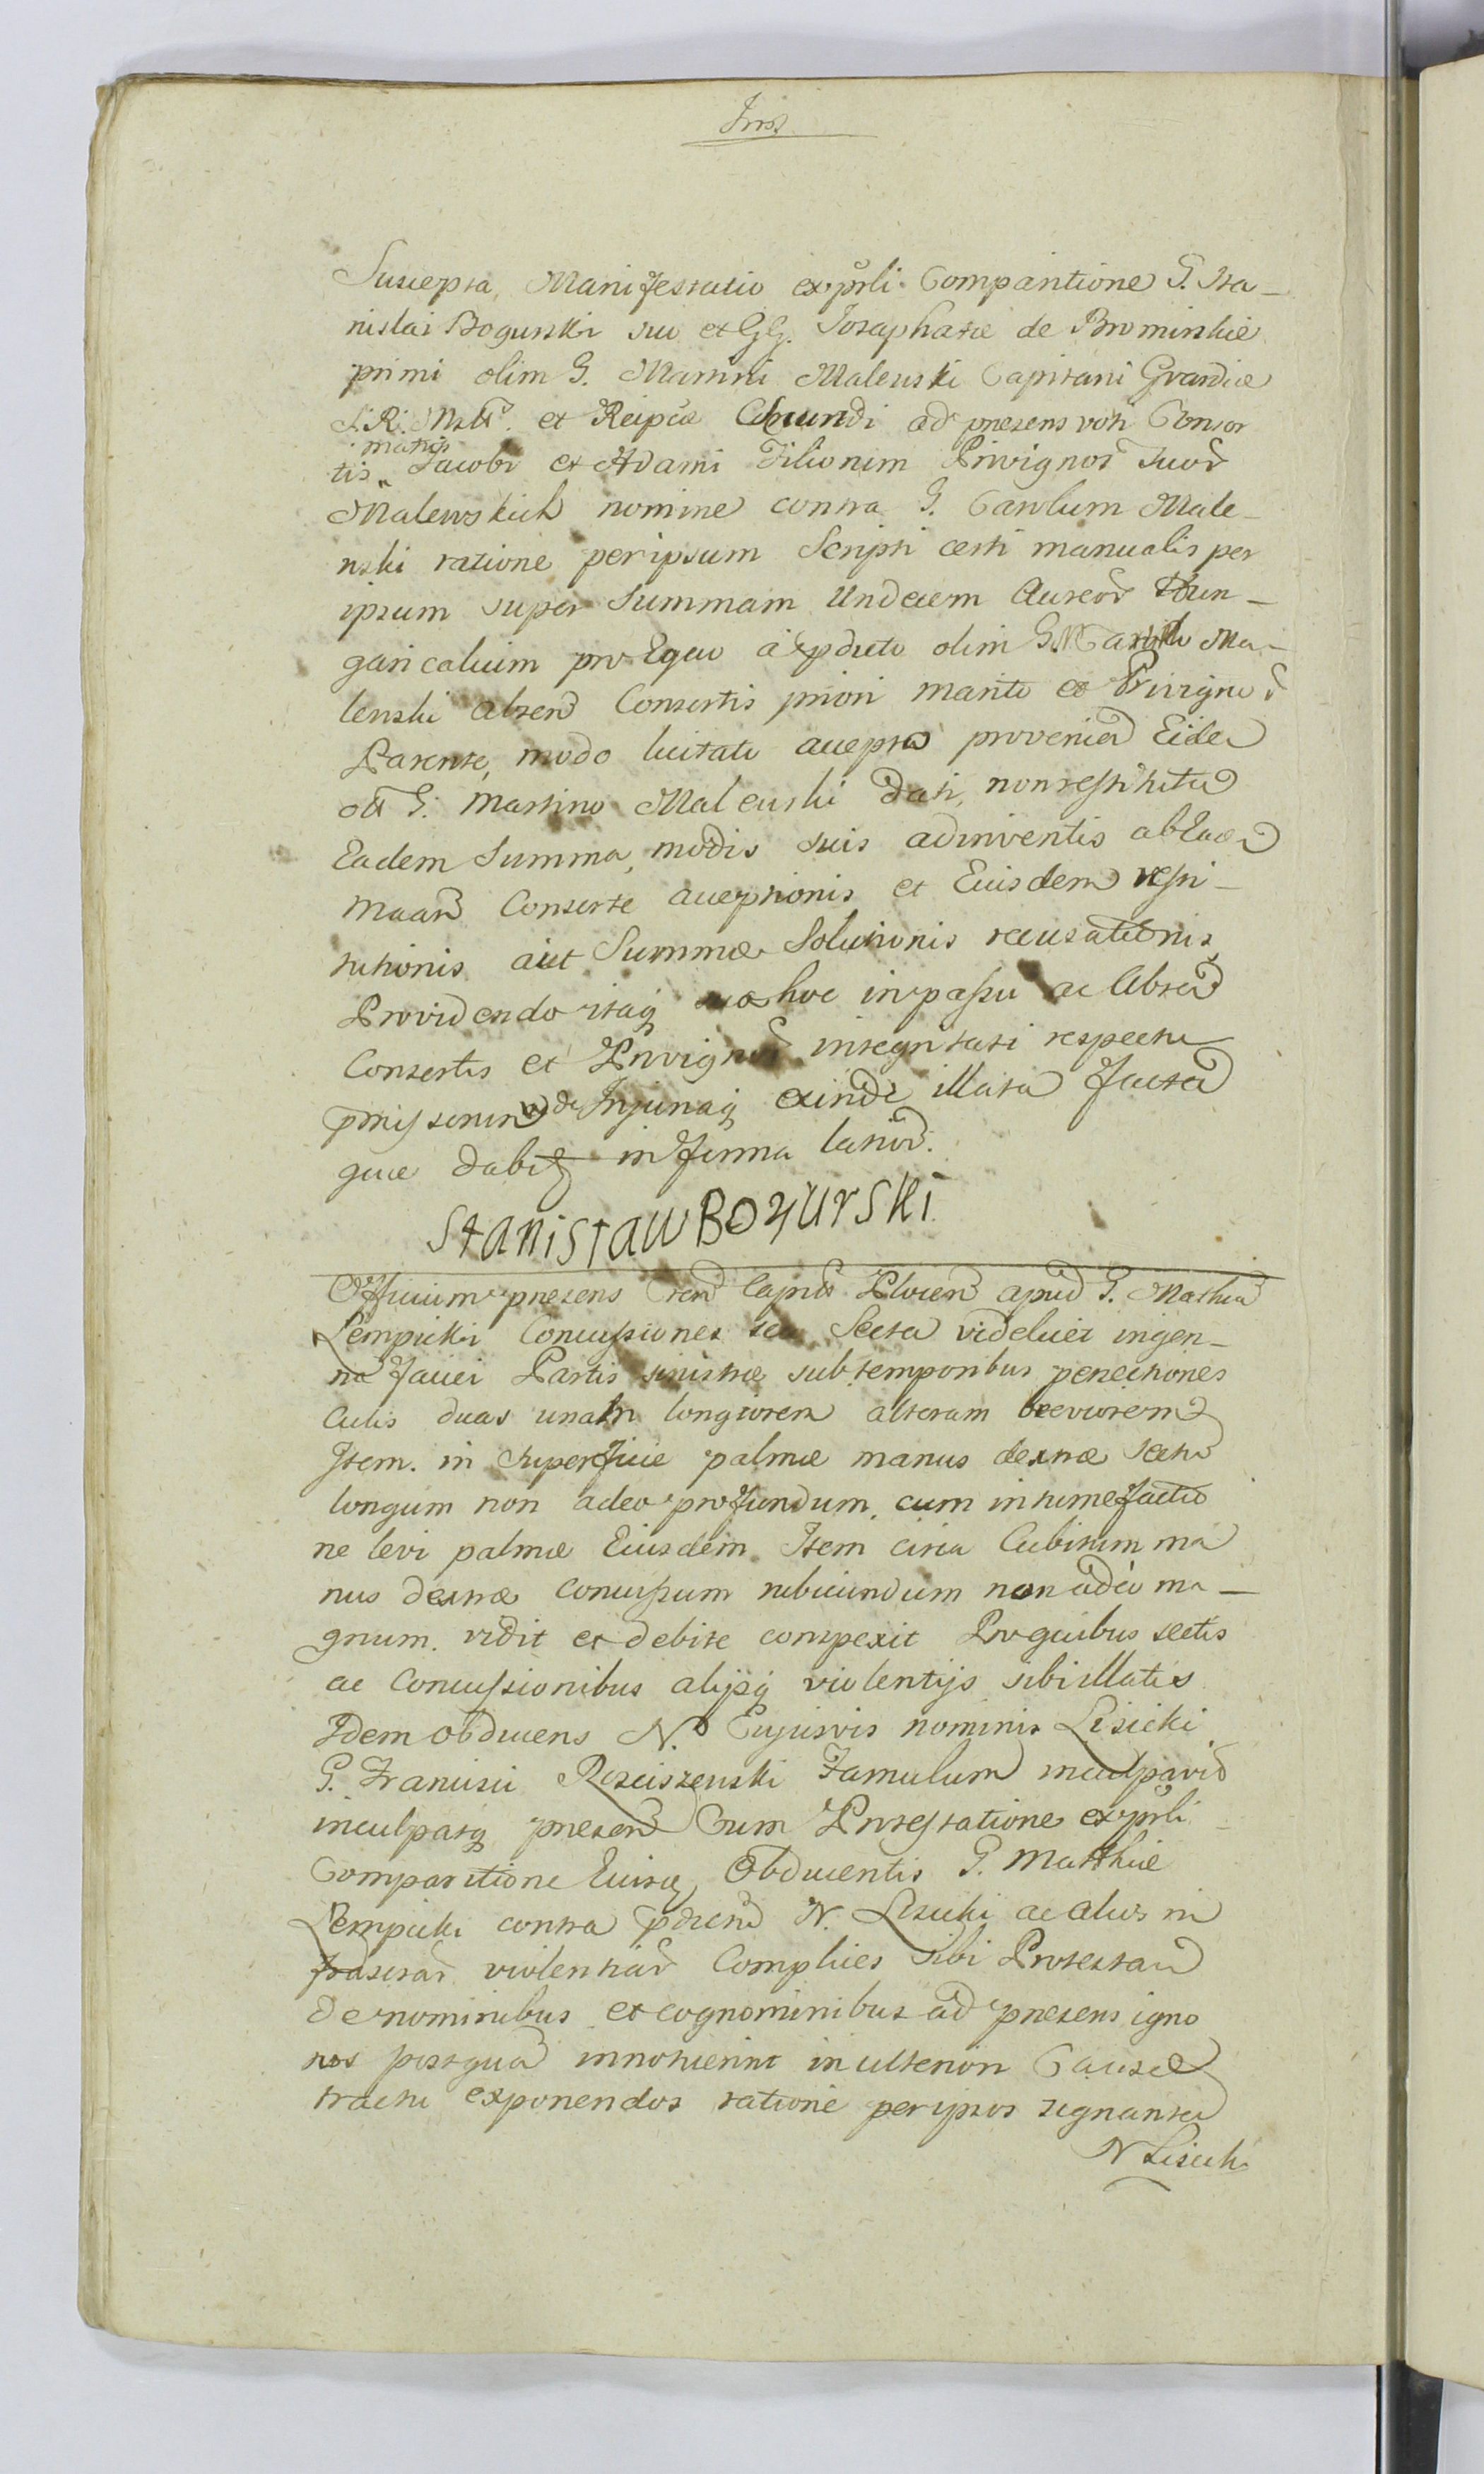 Suscepta, Manifestatio ex prli Comparitione G. Sta-
nislai Bogurski suo et GG. Josaphatæ de Brominskie
primi olim G. Martini Malenski Capitani Gvardiæ
S. R. Mttis et Reipcæ secundi ad præsens voti Consor
tis matris Jacobi et Adami Filiorum Privignor suor
Malewskich nomine contra G. Carolum Male-
nski ratione per ipsum Scripti certi manualis per
ipsum super Summam Undecem Aureor Hun-
garicalium pro Equo a pdicto olim G. Ma-
lenski Consortis priori marito et Privignor
Parente, modo licitato accepto provenien Eidem
olim G. Martino Malenski dati, non restituta
Eadem Summa, modis suis adinventis ab Eadem
Consorte acceptionis et Eiusdem resti-
tutionis aut Summæ Solutionis recusationis
Providendo itaq hoc in passu ac
Consortis et Privignor integritati respectu
præmissorum de Injuriaq exinde illata facta
quæ dabitr in forma latior.
Stanisław Bogurski
Officium præsens Cren Capit Plocen apud G. Mathia
Lempicki Concussiones seu Secta videlicet in gen-
na faciei Partis sinistræ sub temporibus persectiones
Cutis duas unam longiorem alteram breviorem
Item in superficie palmæ manus dextræ sectu
longum non adeo profundum, cum intumefactio
ne levi palmæ Eiusdem Item circa Cubitum ma
nus dextræ concussum rubicundum non adeo ma-
gnum vidit et debite conspexit Pro quibus sectis
ac Concussionibus alijsq violentijs sibi illatis
Idem obducens N. Cujusvis nominis Lisicki
G. Francisci Rosciszewski Famulum inculpavit
inculpatq præsen Cum Protestatione ex prli
Comparitione Eiusd. Obducentis G. Matthiæ
Lempicki contra pdicm N. Lisicki ac alios in
violentiar Complices sibi Protestan
de nominibus et cognominibus ad præsens igno
tos postquam innotuerint in ulteriori Causæ
tractu exponendos ratione per ipsos signanter
N Lisicki